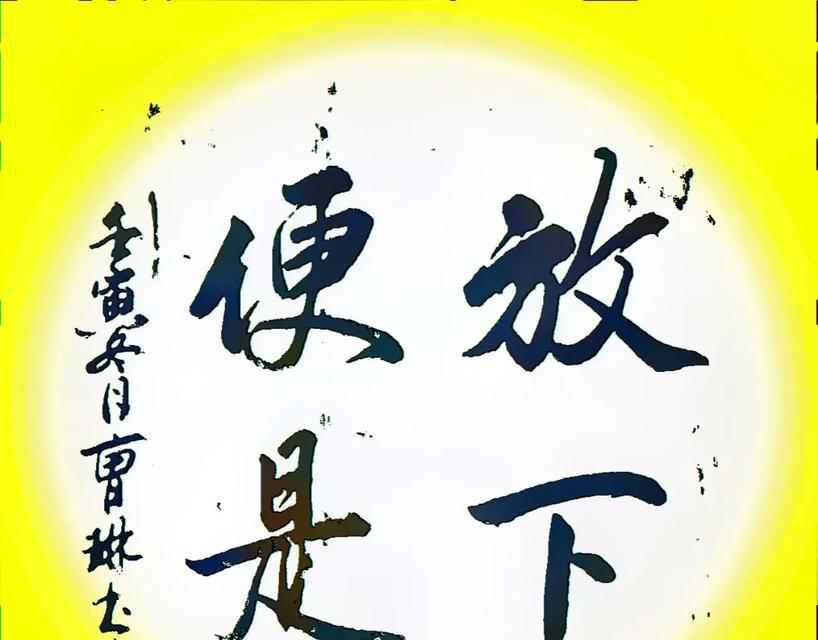 放下
便是
壬寅冬月曹琳书